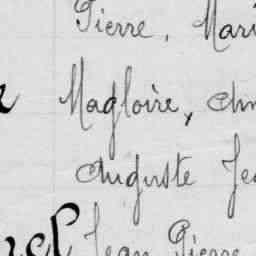 Pierre, Mari
Magloire, Am
Auguste Je
Jean Pierre